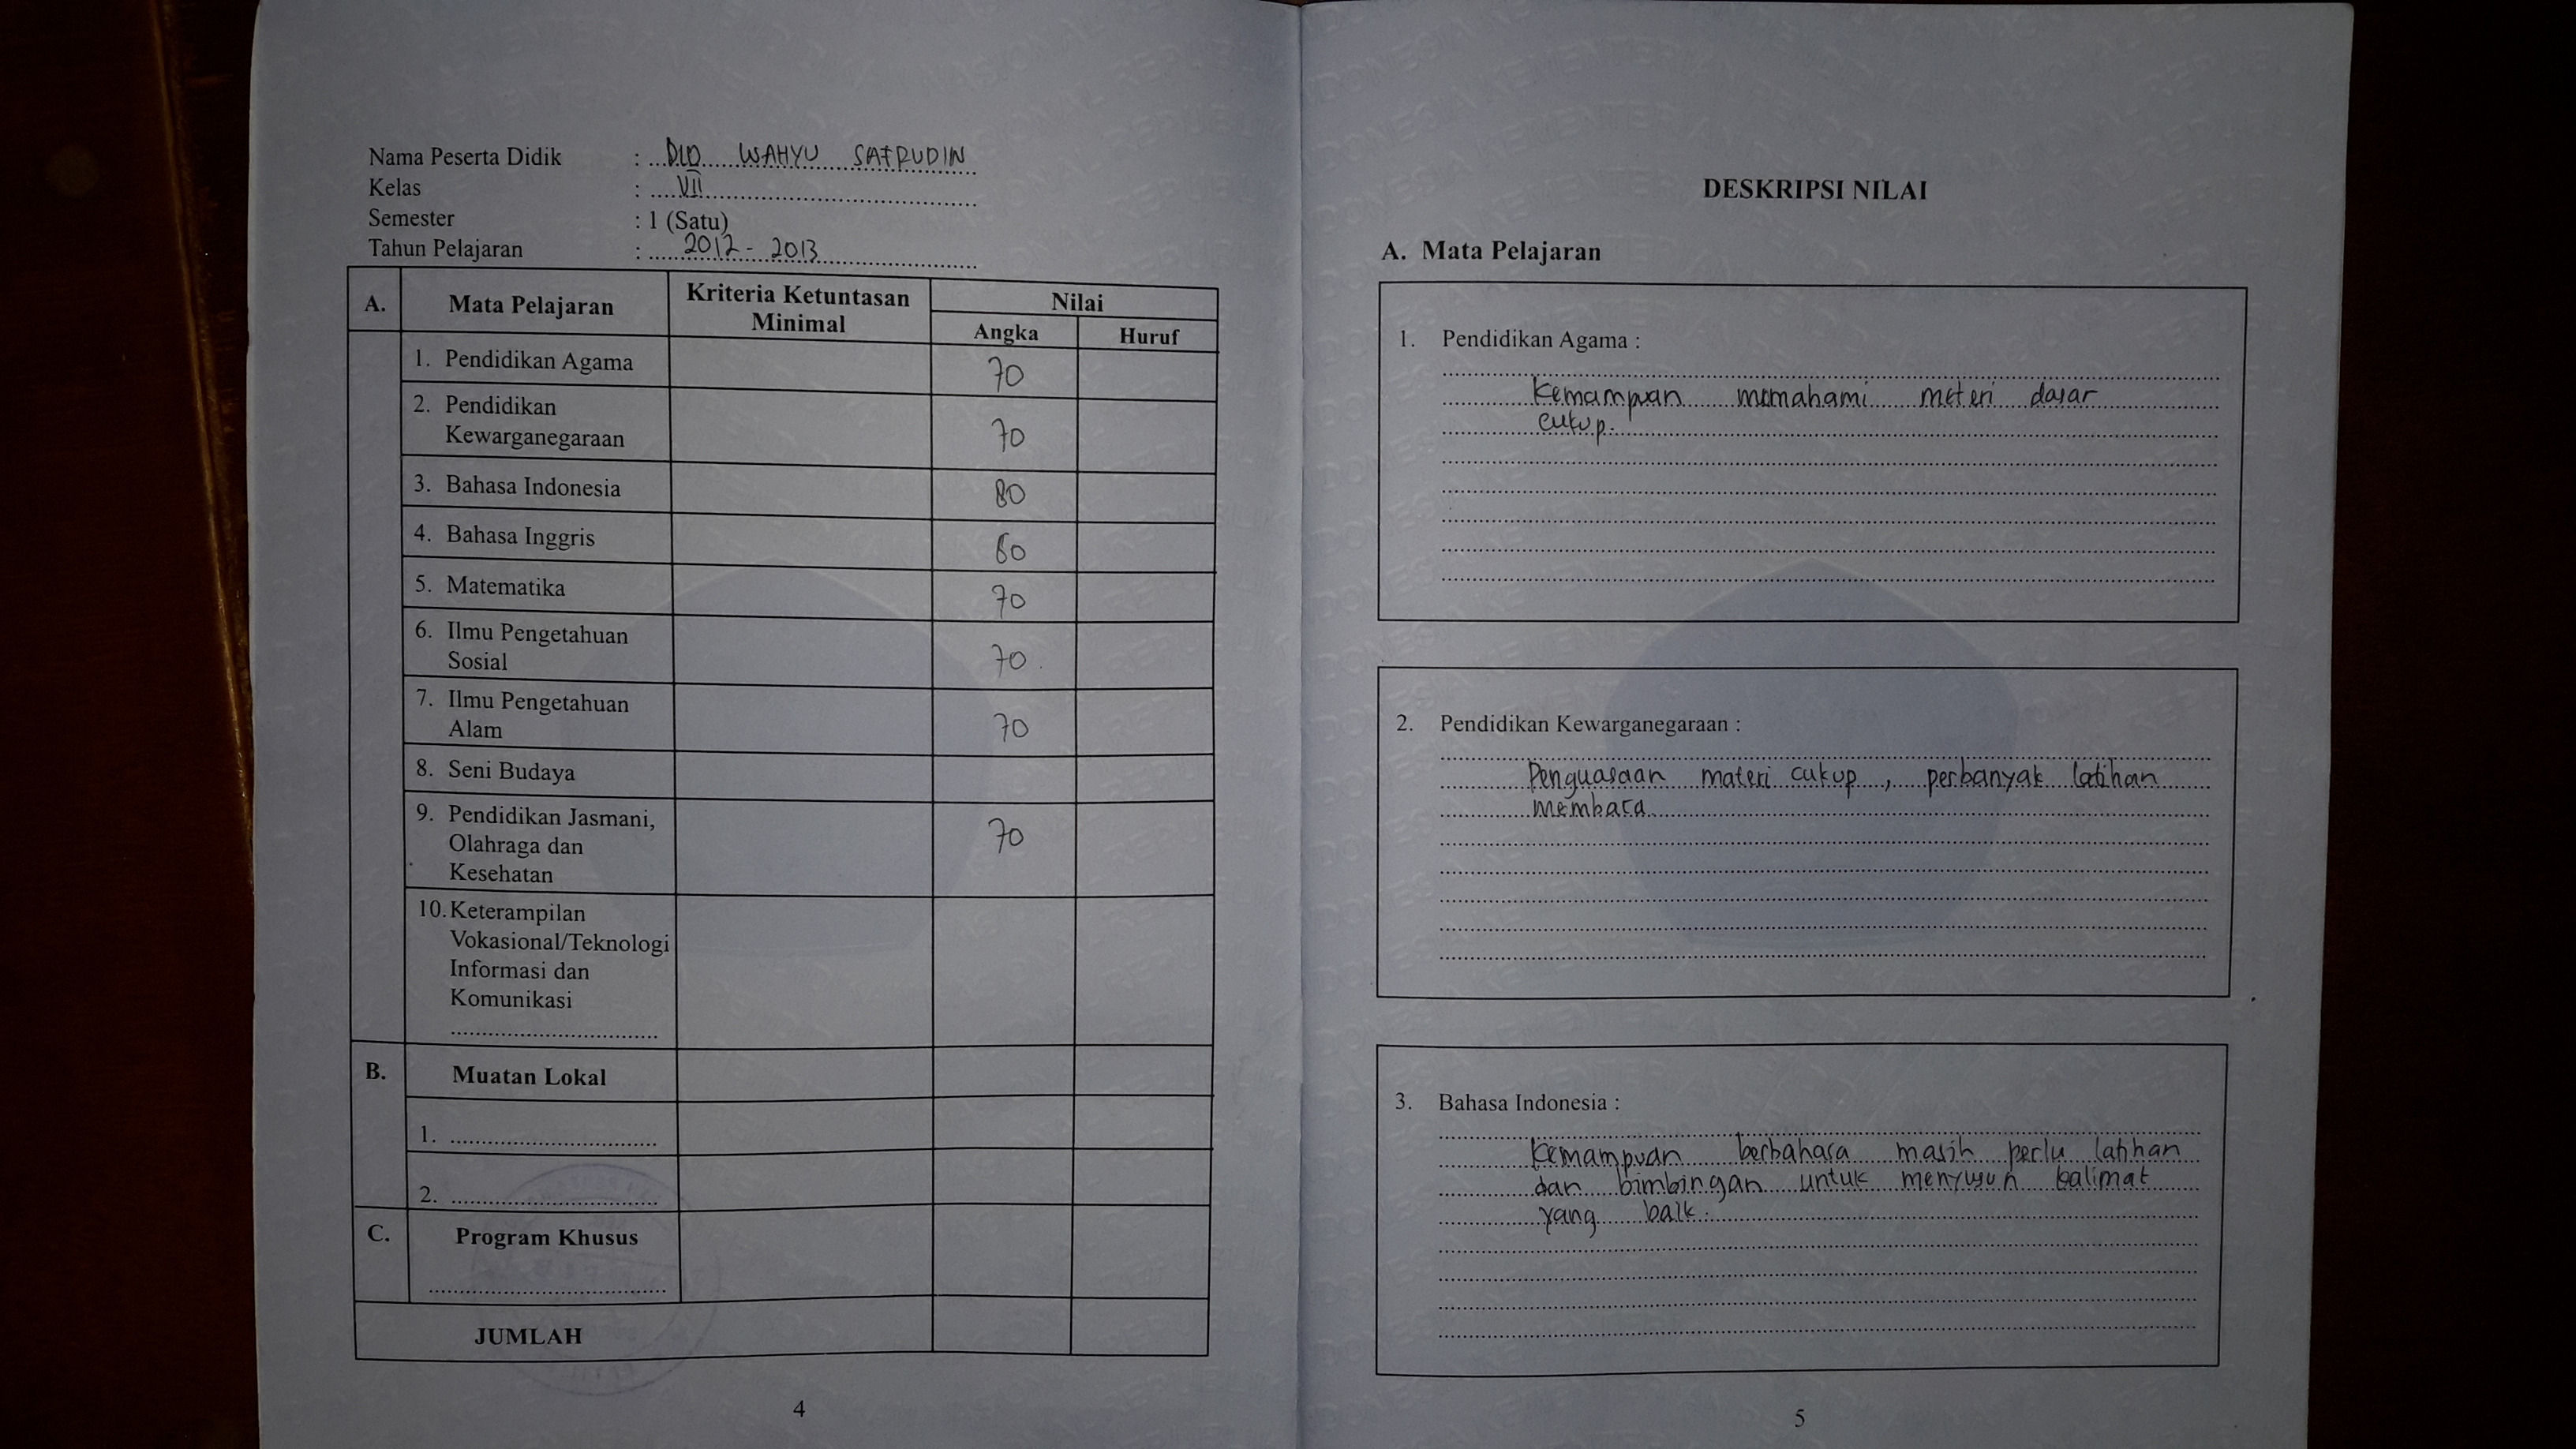 Nama Peserta Didik : DIO WAHYU SAFRUDIN
Kelas : VII
Semester : 1 (Satu)
Tahun Pelajaran : 2012 - 2013
A. Mata Pelajaran Kriteria Ketuntasan Minimal Nilai
Angka Huruf
1. Pendidikan Agama 70
2. Pendidikan
Kewarganegaraan 70
3. Bahasa Indonesia 80
4. Bahasa Inggris 60
5. Matematika 70
6. Ilmu Pengetahuan
Sosial 70
7. Ilmu Pengetahuan
Alam 70
8. Seni Budaya
9. Pendidikan Jasmani,
Olahraga dan 70
Kesehatan
10. Keterampilan
Vokasional/Teknologi
Informasi dan
Komunikasi
B. Muatan Lokal
1.
2.
C. Program Khusus
JUMLAH
4
DESKRIPSI NILAI
A. Mata Pelajaran
1. Pendidikan Agama :
Kemampuan memahami materi dasar
cukup.
2. Pendidikan Kewarganegaraan :
Penguasaan materi cukup, perbanyak latihan
membaca
3. Bahasa Indonesia :
Kemampuan berbahasa masih perlu latihan
dan bimbingan untuk menyusun kalimat
yang baik.
5